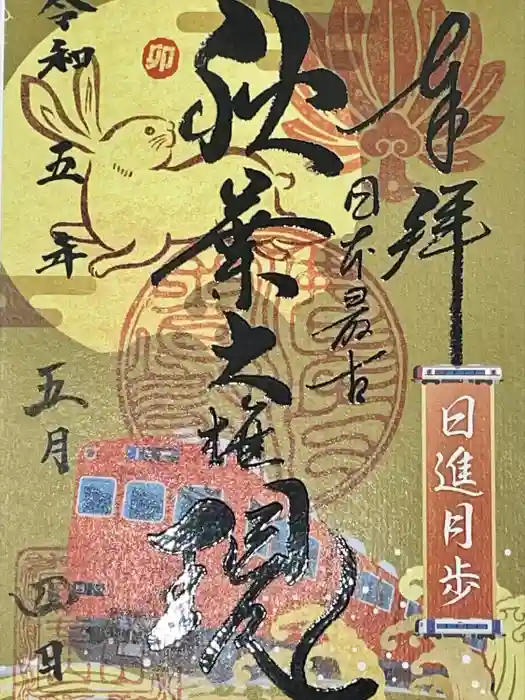 奉拝
日本最古
秋葉大権現
卯
令和五年
五月
四日
日進月歩